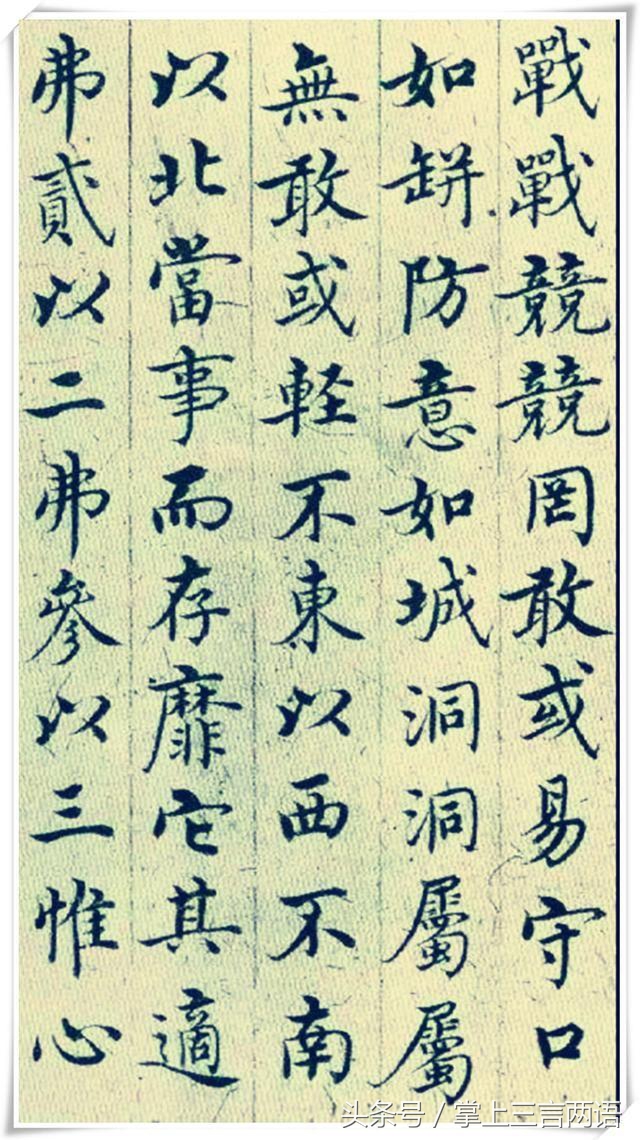 戰戰競競罔敢或易守口
如缾防意如城洞洞屬屬
無敢或軽不東以西不南
以北當事而存靡它其適
弗貳以二弗參以三惟心
头条号 / 掌上三言两语